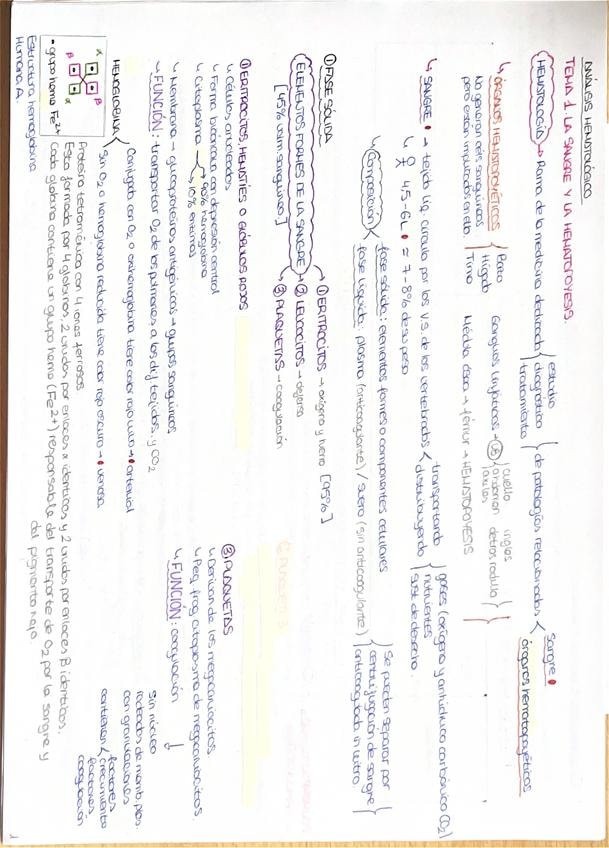 ANÁLISIS HEMATOLÓGICO
TEMA 1 LA SANGRE Y LA HEMATOPOYESIS.
HEMATOLOGÍA → Rama de la medicina dedicada estudio diagnóstico tratamiento de patologías relacionadas Sangre órganos hematopoyéticos
ÓRGANOS HEMATOPOYÉTICOS
No generan céls sanguíneas
pero están implicados en ella
Bazo
Hígado
Timo
Ganglios linfáticos
cuello
abdomen
axilas
ingles
detrás rodilla
Médula ósea → fémur → HEMATOPOYESIS
SANGRE → tejido líq. circula por los v.s. de los vertebrados transportando distribuyendo
gases (oxígeno y anhídrido carbónico CO2)
nutrientes
sust de desecho.
♀ 4.5-6L ≈ 7-8% de su peso
Composición
fase sólida: elementos formes o componentes celulares
fase líquida: plasma (anticoagulante) / suero (sin anticoagulante)
Se pueden separar por
centrifugación de sangre
anticoagulada in vitro.
① FASE SÓLIDA
ELEMENTOS FORMES DE LA SANGRE
[45% volm sanguíneo]
① ERITROCITOS → oxígeno y hierro [95%]
② LEUCOCITOS → defensa
③ PLAQUETAS → coagulación
① ERITROCITOS, HEMATÍES O GLÓBULOS ROJOS
↳ Células anucleadas
↳ Forma bicóncava con depresión central
↳ Citoplasma → 90% hemoglobina
10% enzimas
↳ Membrana → glucoproteínas antigénicas → grupos sanguíneos
↳ FUNCIÓN: transportar O2 de los pulmones a los dif tejidos. y CO2
③ PLAQUETAS
↳ Derivan de los megacariocitos
↳ Peq. frag citoplasma de megacariocitos
↳ FUNCIÓN: coagulación
Sin núcleo
rodeadas de memb. plas.
con granulaciones
contienen factores crecimiento
factores coagulación
HEMOGLOBINA
Conjugada con O2 o oxihemoglobina tiene color rojo vivo → arterial
Sin O2 o hemoglobina reducida tiene color rojo oscuro → venosa
Proteína tetramérica con 4 iones ferrosos
Está formada por 4 globinas, 2 unidas por enlaces α idénticos y 2 unidas por enlaces β idénticos.
Cada globina contiene un grupo hemo (Fe2+) responsable del transporte de O2 por la sangre y
del pigmento rojo.
α
β
β
α
• grupo hemo Fe2+
Estructura hemoglobina
Humana A.
1